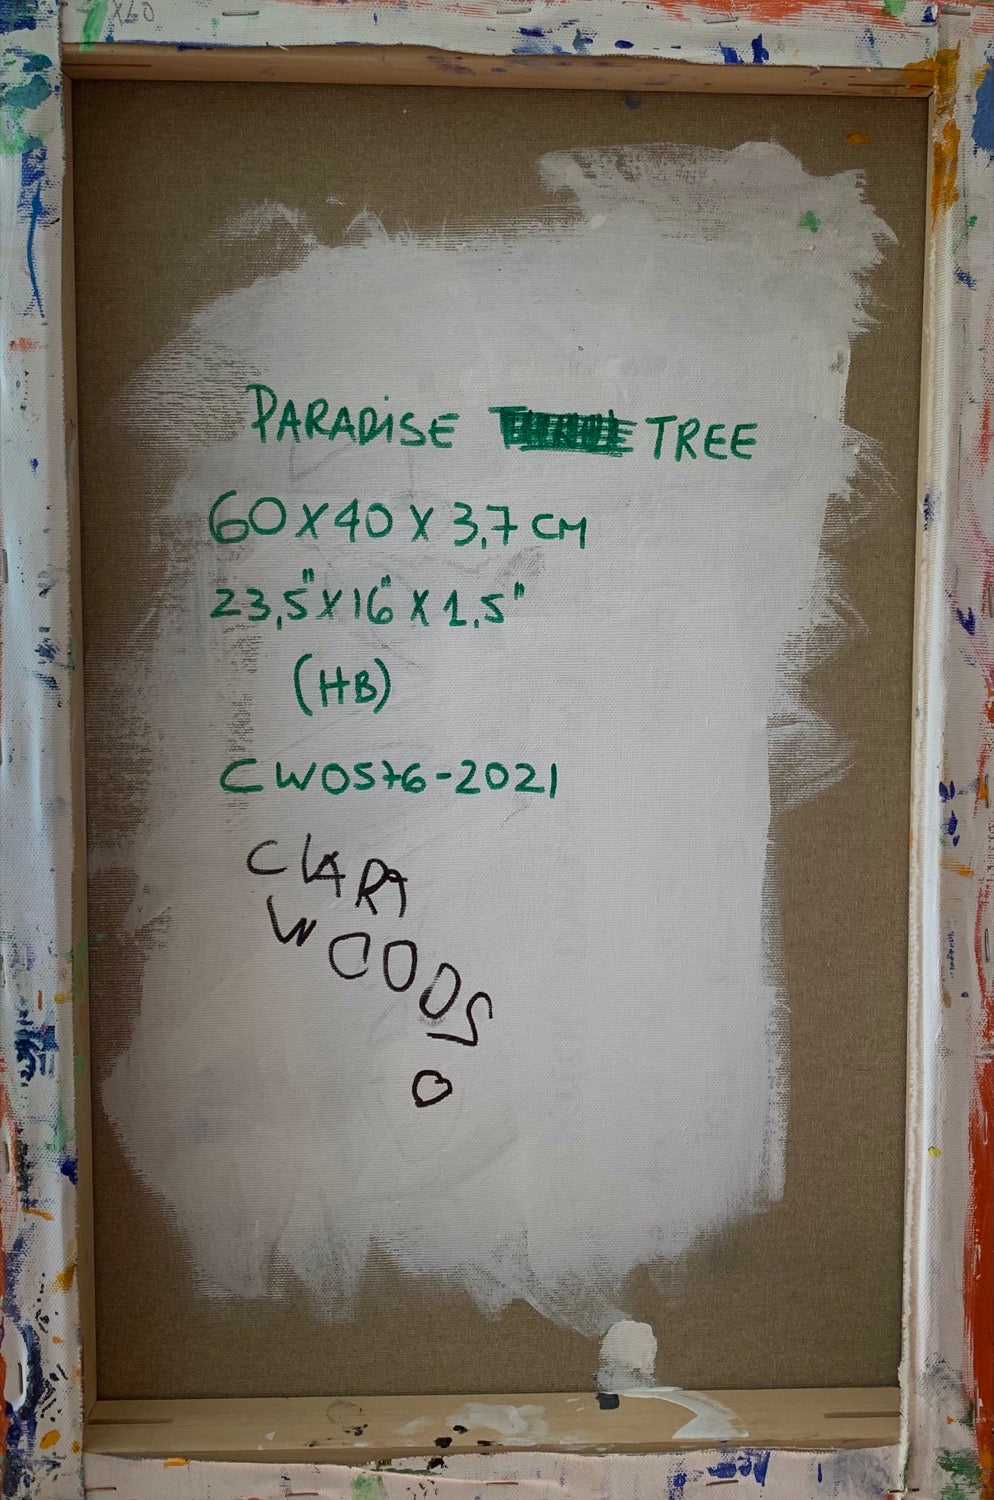 x60
PARADISE TREE
60 X 40 X 3,7 CM
23,5" X 16" X 1,5"
(HB)
CW0576-2021
CLARA
WOODS